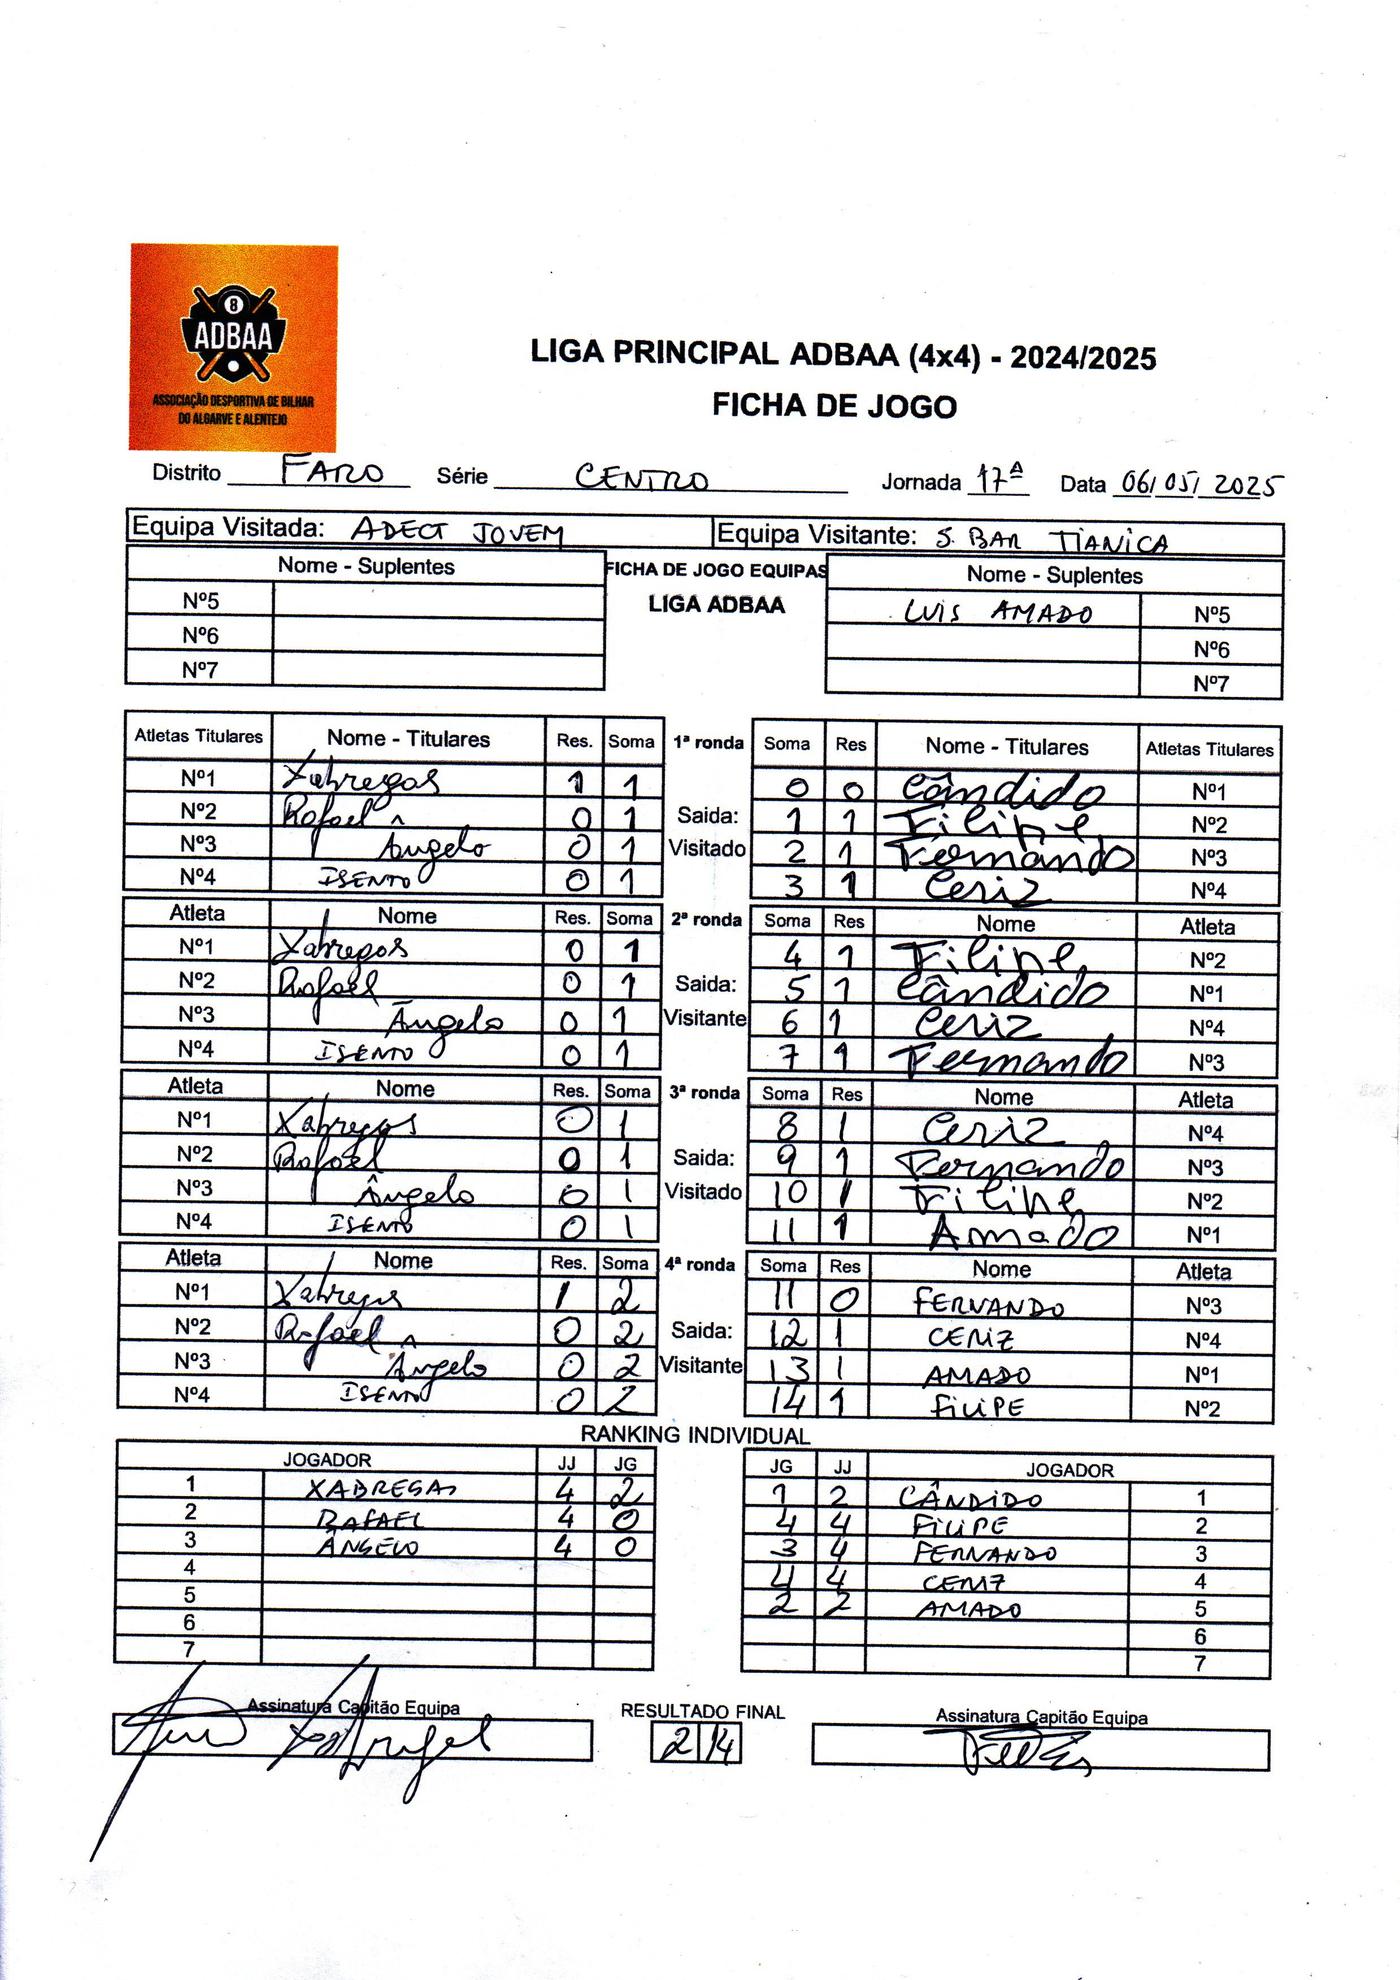 8
ADBAA
ASSOCIAÇÃO DESPORTIVA DE BILHAR
DO ALGARVE E ALENTEJO
LIGA PRINCIPAL ADBAA (4x4) - 2024/2025
FICHA DE JOGO
Distrito FARO Série CENTRO Jornada 17ª Data 06/05/2025
Equipa Visitada: ADECT JOVEM Equipa Visitante: S. BAR TIANICA
Nome - Suplentes FICHA DE JOGO EQUIPAS Nome - Suplentes
Nº5 LIGA ADBAA LUIS AMADO Nº5
Nº6 Nº6
Nº7 Nº7
Atletas Titulares Nome - Titulares Res. Soma 1ª ronda Soma Res Nome - Titulares Atletas Titulares
Nº1 Xabregas 1 1 0 0 Cândido Nº1
Nº2 Rafael 0 1 Saida: 1 1 Filipe Nº2
Nº3 Ângelo 0 1 Visitado 2 1 Fernando Nº3
Nº4 ISENTO 0 1 3 1 Ceriz Nº4
Atleta Nome Res. Soma 2ª ronda Soma Res Nome Atleta
Nº1 Xabregas 0 1 4 1 Filipe Nº2
Nº2 Rafael 0 1 Saida: 5 1 Cândido Nº1
Nº3 Ângelo 0 1 Visitante 6 1 Ceriz Nº4
Nº4 ISENTO 0 1 7 1 Fernando Nº3
Atleta Nome Res. Soma 3ª ronda Soma Res Nome Atleta
Nº1 Xabregas 0 1 8 1 Ceriz Nº4
Nº2 Rafael 0 1 Saida: 9 1 Fernando Nº3
Nº3 Ângelo 0 1 Visitado 10 1 Filipe Nº2
Nº4 ISENTO 0 1 11 1 Amado Nº1
Atleta Nome Res. Soma 4ª ronda Soma Res Nome Atleta
Nº1 Xabregas 1 2 11 0 FERNANDO Nº3
Nº2 Rafael 0 2 Saida: 12 1 CERIZ Nº4
Nº3 Ângelo 0 2 Visitante 13 1 AMADO Nº1
Nº4 ISENTO 0 2 14 1 FILIPE Nº2
RANKING INDIVIDUAL
JOGADOR JJ JG JG JJ JOGADOR
1 XABREGAS 4 2 1 2 CÂNDIDO 1
2 RAFAEL 4 0 4 4 FILIPE 2
3 ÂNGELO 4 0 3 4 FERNANDO 3
4 4 4 CERIZ 4
5 2 2 AMADO 5
6 6
7 7
Assinatura Capitão Equipa RESULTADO FINAL Assinatura Capitão Equipa
2 14